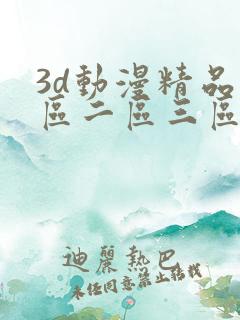 3d動漫精品
區二區三區
迪麗熱巴
未經同意禁止轉載